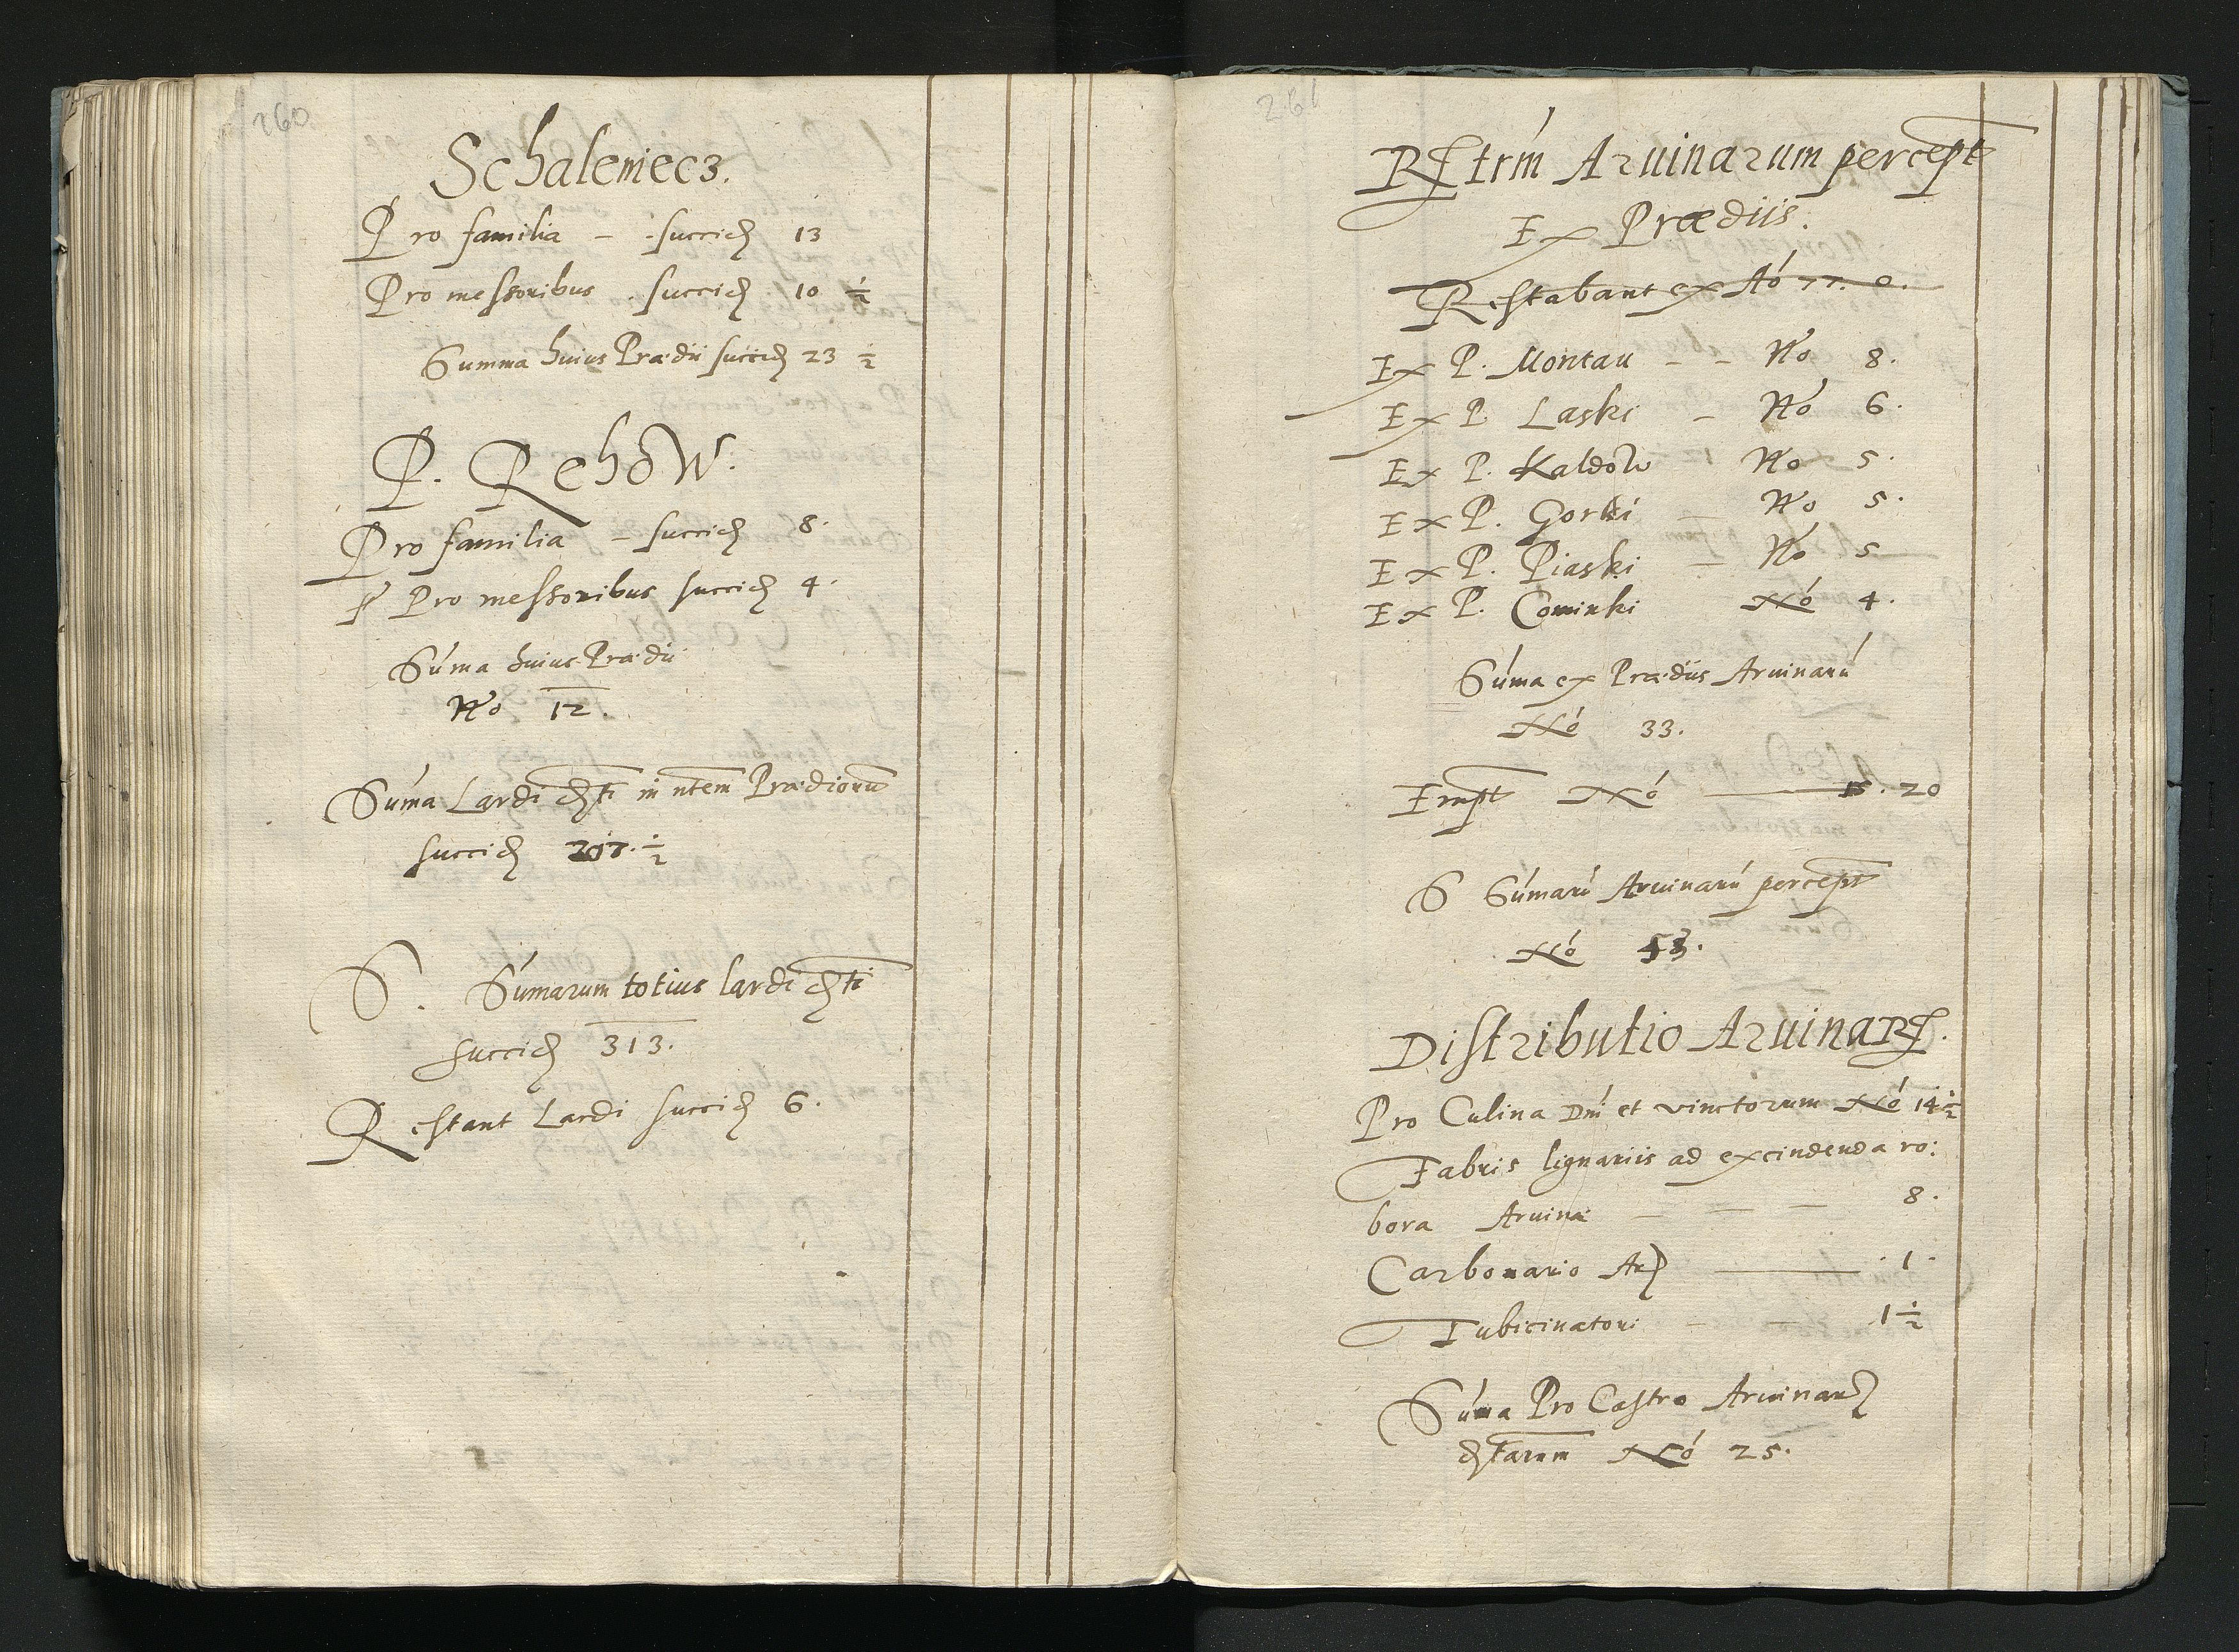 260
Schalemecz.
Pro familia – succid 13
Pro messoribus . succid 10 ½
Summa huius Prædii succid 23 ½
P. Rehow.
Pro familia – succid 8.
Pro messoribus succid 4.
Suma huius Prædii
No 12.
Suma Lardi dsti in ntem Prædiorum
succid 207. ½
S. Sumarum totius lardi dsti
succid 313.
Restant Lardi succid 6.
261
Rstrm Aruinarum percept
Ex Prædiis.
Restabant ex Ao 77. 0.
Ex P. Montau – – No 8.
Ex P. Laski – No 6.
Ex P. Kaldow No 5.
Ex P. Gorki – No 5.
Ex P. Piaski – No 5
Ex P. Cominki No 4.
Suma ex Prædiis Aruinaru
No 33.
Empt No 20
S Sumaru Aruinaru percept
No 53.
Distributio Aruinar.
Pro Culina Dni et vinctorum No 14 ½
Fabris lignariis ad excindenda ro:
bora Aruina – – – 8.
Carbonario Ar 1.
Tubicinatori – – 1 ½
Suma Pro Castro Aruinar
dstarum No 25.